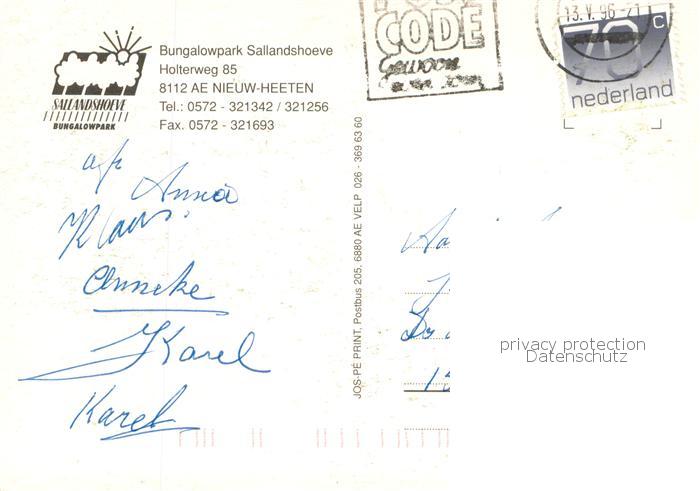 Bungalowpark Sallandshoeve
Holterweg 85
8112 AE NIEUW-HEETEN
Tel.: 0572 - 321342 / 321256
Fax. 0572 - 321693
SALLANDSHOEVE
BUNGALOWPARK
CODE
GEWOON
13.V.96-21
70 c
nederland
Anna
Klaas.
Anneke
Karel
Karel
JOS-PÉ PRINT, Postbus 205, 6880 AE VELP 026 - 369 63 60
Aa
Dr
privacy protection
Datenschutz